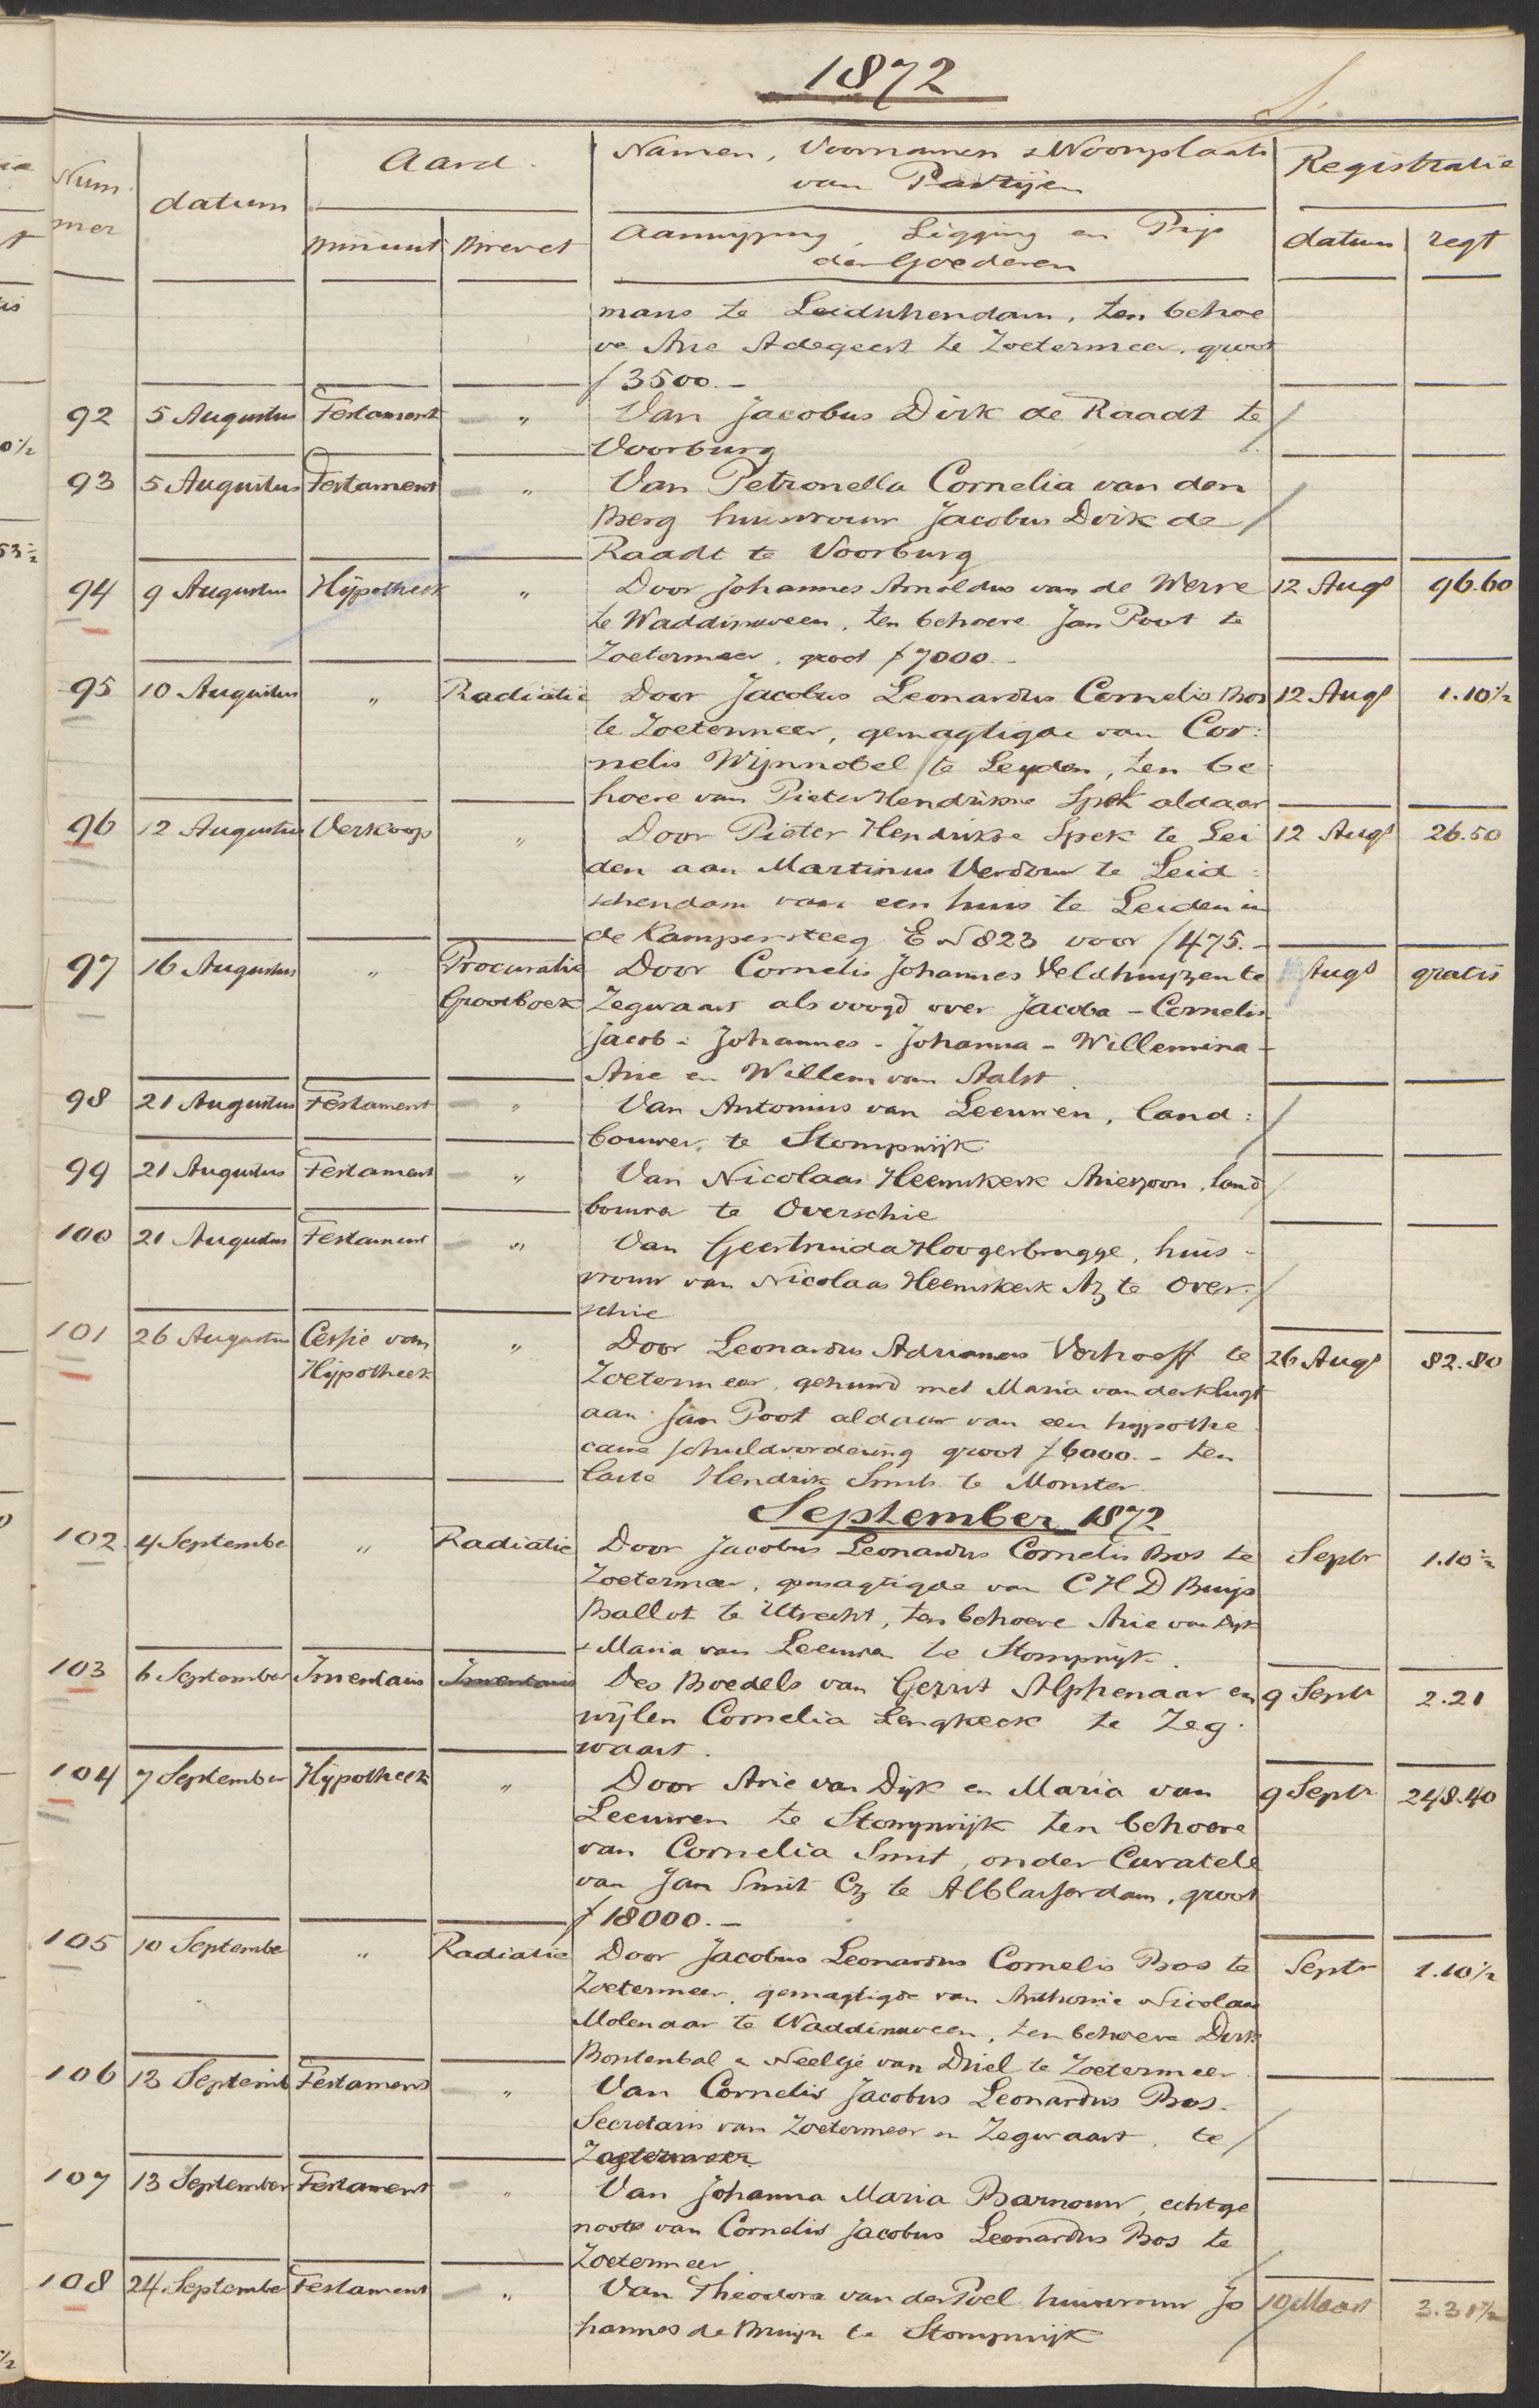 1872
Nummer datum Aard Namen, Voornamen & Woonplaats van Partijen Registratie
minuut Brevet Aanwijzing, Ligging en Prijs der Goederen datum regt
mans te Leidschendam, ten behoe
ve Arie Adegeest te Zoetermeer, groot
ƒ 3500.-
92 5 Augustus Testament " Van Jacobus Dirk de Raadt te
Voorburg
93 5 Augustus Testament " Van Petronella Cornelia van den
Berg huisvrouw Jacobus Dirk de
Raadt te Voorburg
94 9 Augustus Hypotheek " Door Johannes Arnoldus van de Werve 12 Augs 96.60
te Waddinxveen, ten behoeve Jan Poot te
Zoetermeer, groot ƒ 7000.-
95 10 Augustus " Radiatie Door Jacobus Leonardus Cornelis Bos 12 Augs 1.10½
te Zoetermeer, gemagtigde van Cor:
nelis Wijnnobel te Leyden, ten be
hoeve van Pieter Hendrikse Spek aldaar
96 12 Augustus Verkoop " Door Pieter Hendrikse Spek te Lei 12 Augs 26.50
den aan Martinus Verdouw te Leid:
schendam van een huis te Leiden in
de Kampersteeg E N 823 voor ƒ 475.-
97 16 Augustus " Procuratie Door Cornelis Johannes Veldhuyzen te Augs gratis
Grootboek Zegwaart als voogd over Jacoba - Cornelis
Jacob - Johannes - Johanna - Willemina -
Arie en Willem van Aalst
98 21 Augustus Testament " Van Antonius van Leeuwen, land:
bouwer, te Stompwijk
99 21 Augustus Testament " Van Nicolaas Heemskerk Ariezoon, land
bouwer te Overschie
100 21 Augustus Testament " Van Geertruida Hoogerbrugge, huis-
vrouw van Nicolaas Heemskerk Az te Over:
schie
101 26 Augustus Cessie van " Door Leonardus Adrianus Verhoeff te 26 Augs 82.80
Hypotheek Zoetermeer, gehuwd met Maria van der Klugt
aan Jan Poot aldaar van een hypothe
caire schuldvordering groot ƒ 6000.- ten
laste Hendrik Smits te Monster
September 1872
102 4 Septembe " Radiatie Door Jacobus Leonardus Cornelis Bos te Septr 1.10½
Zoetermeer, gemagtigde van C H D Buijs
Ballot te Utrecht, ten behoeve Arie van Dijk
& Maria van Leeuwen te Stompwijk.
103 6 September Inventaris Inventaris Des Boedels van Gerrit Alphenaar en 9 Septr 2.21
wijlen Cornelia Lengkeek te Zeg.
waart.
104 7 September Hypotheek " Door Arie van Dijk en Maria van 9 Septr 248.40
Leeuwen te Stompwijk ten behoeve
van Cornelia Smit, onder Curatele
van Jan Smit Cz te Alblasserdam, groot
ƒ 18000.-
105 10 Septembe " Radiatie Door Jacobus Leonardus Cornelis Bos te Septr 1.10½
Zoetermeer, gemagtigde van Anthonie Nicolaas
Molenaar te Waddinxveen, ten behoeve Dirk
Bontenbal & Neeltje van Driel te Zoetermeer
106 13 Septemb Testament " Van Cornelis Jacobus Leonardus Bos.
Secretaris van Zoetermeer en Zegwaart, te
Zoetermeer
107 13 September Testament " Van Johanna Maria Barnouw, echtge
noote van Cornelis Jacobus Leonardus Bos te
Zoetermeer
108 24 Septembe Testament " Van Theodora van der Poel huisvrouw Jo 19 Maart 3.31½
hannes de Bruijn te Stompwijk